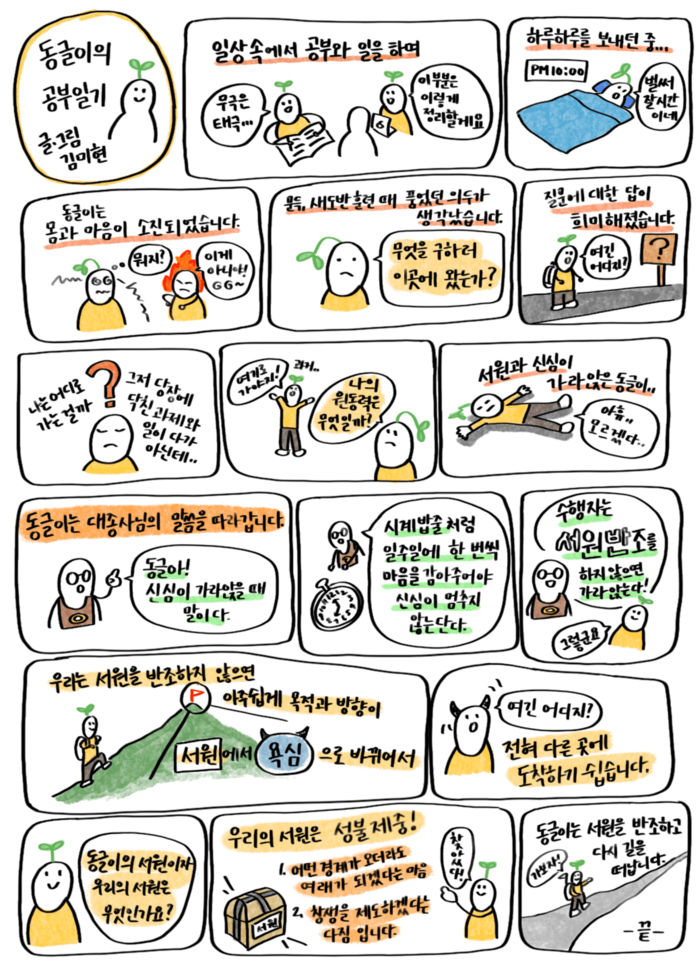 동글이의
공부일기
글·그림
김미현
일상 속에서 공부와 일을 하며
무극은
태극...
이부분은
이렇게
정리할게요
하루하루를 보내던 중...
PM 10:00
벌써
잘시간
이네
동글이는
몸과 마음이 소진되었습니다.
뭐지?
이게
아니야!
GG~
문득, 새도반 훈련 때 품었던 의두가
생각났습니다
무엇을 구하러
이곳에 왔는가?
질문에 대한 답이
희미해졌습니다.
여긴
어디지?
?
나는 어디로
가는 걸까
?
그저 당장에
닥친 과제와
일이 다가
아닌데..
여기로
가야지!
과거..
나의
원동력은
무엇일까?
서원과 신심이
가라앉은 동글이..
아휴..
모르겠다..
동글이는 대종사님의 말씀을 따라갑니다.
동글아!
신심이 가라앉을 때
말이다.
시계밥줄처럼
일주일에 한 번씩
마음을 감아주어야
신심이 멈추지
않는단다.
수행자는
서원반조를
하지 않으면
가라앉는다!
그렇군요
우리는 서원을 반조하지 않으면
아주쉽게 목적과 방향이
서원에서 욕심으로 바뀌어서
여긴 어디지?
전혀 다른 곳에
도착하기 쉽습니다.
동글이의 서원이자
우리의 서원은
무엇인가요?
우리의 서원은 성불제중!
1. 어떤 경계가 오더라도
여래가 되겠다는 마음
2. 창생을 제도하겠다는
다짐 입니다.
서원
찾았다!
동글이는 서원을 반조하고
다시 길을
떠납니다.
가보자!
-끝-